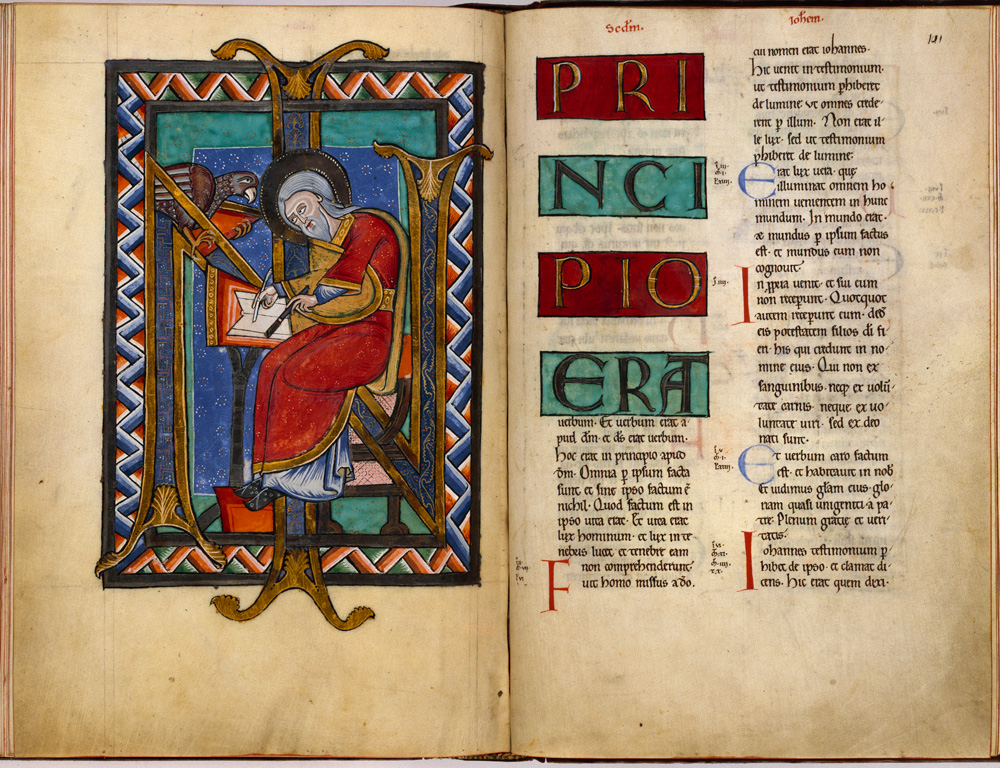 IN
Scdm.
Iohem.
PRI
NCI
PIO
ERAT
uerbum. Et uerbum erat a
pud dm̄. et ds̄ erat uerbum.
Hoc erat in principio apud
dm̄. Omnia ꝑ ipsum facta
sunt. et sine ipso factum ē
nichil. Quod factum est in
ipso uita erat. Et uita erat
lux hominum. et lux in te
nebris lucet. et tenebrę eam
non comprehenderunt.
Fuit homo missus a do.
cui nomen erat iohannes.
Hic uenit in testimonium.
ut testimonium ꝑhiberet
de lumine. ut omnes crede
rent ꝑ illum. Non erat il
le lux. sed ut testimonium
ꝑhiberet de lumine.
Erat lux uera. quę
illuminat omnem ho
minem uenientem in hunc
mundum. In mundo erat.
et mundus ꝑ ipsum factus
est. et mundus eum non
cognouit.
In ꝓpria uenit. et sui eum
non receperunt. Quotquot
autem receperunt eum. dedit
eis potestatem filios di fi
eri. his qui credunt in no
mine eius. Qui non ex
sanguinibus. neq; ex uolun
tate carnis. neque ex uo
luntate uiri. sed ex deo
nati sunt.
Et uerbum caro factum
est. et habitauit in nob
Et uidimus glam eius. glo
riam quasi unigeniti a pa
tre. Plenum gratię et ueri
tatis.
Iohannes testimonium ꝑ
hibet de ipso. et clamat di
cens. Hic erat quem dixi.